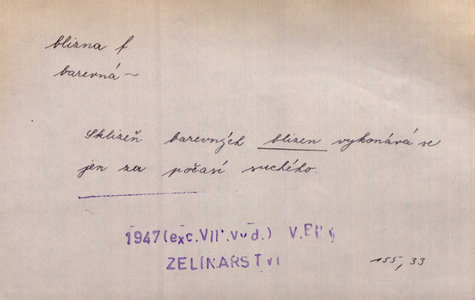 blizna f
barevná ~
Sklizeň barevných blizen vykonává se
jen za počasí suchého.
1947 (exc. VII. vyd.) V.
ZELINÁŘSTVÍ
155, 33